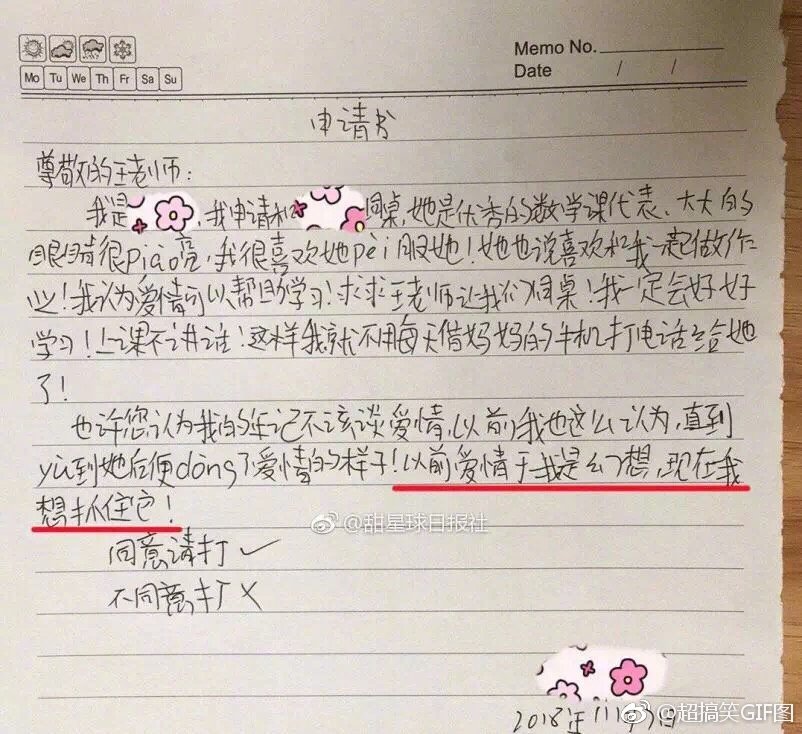 Memo No.
Mo Tu We Th Fr Sa Su
Date / /
申请书
尊敬的王老师:
我是 ,我申请和 同桌,她是优秀的数学课代表、大大的
眼睛很piào亮,我很喜欢她pèi服她!她也说喜欢和我一起做作
业!我认为爱情可以帮助学习!求求王老师让我们同桌!我一定会好好
学习!上课不讲话!这样我就不用每天借妈妈的手机打电话给她
了!
也许您认为我的年记不该谈爱情,以前我也这么认为,直到
yù到她后便dǒng了爱情的样子!以前爱情于我是幻想,现在我
想抓住它!
@甜星球日报社
同意请打✓
不同意打✗
2018年
@超搞笑GIF图